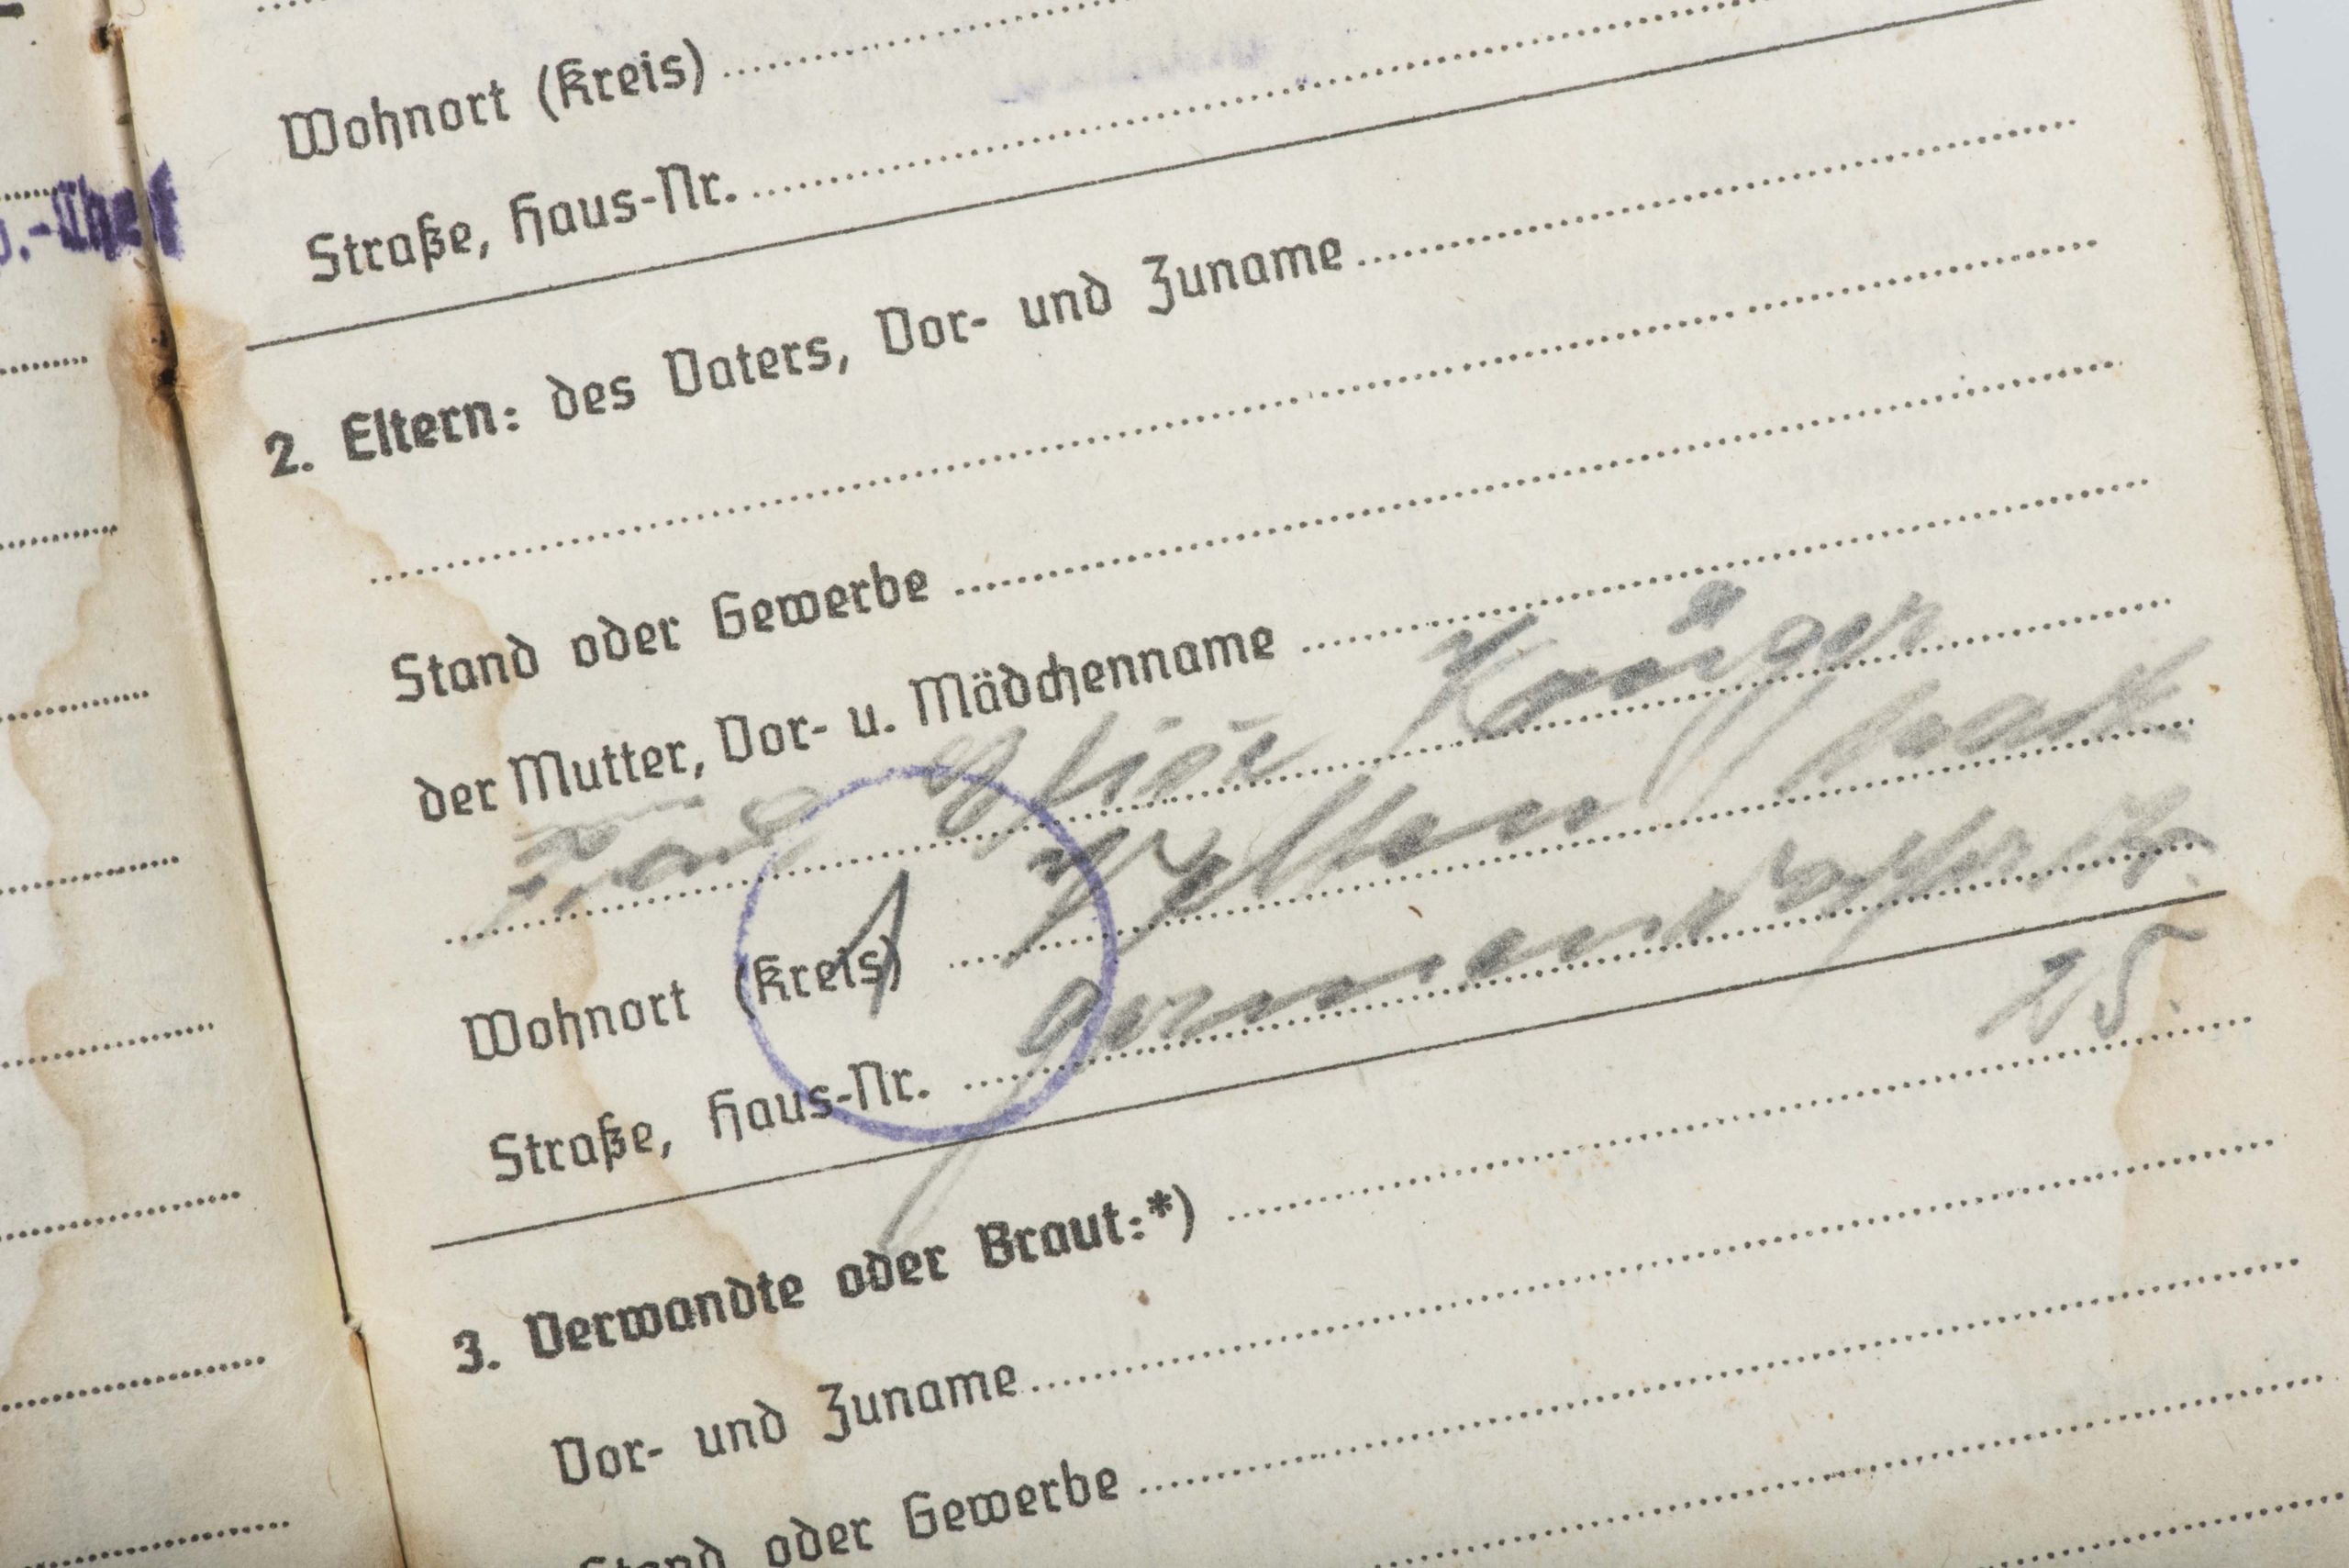 .-Chef
Wohnort (Kreis)
Straße, Haus-Nr.
2. Eltern: des Vaters, Vor- und Zuname
Stand oder Gewerbe
der Mutter, Vor- u. Mädchenname
Frau Krüger
Wohnort (Kreis) Velten
Straße, Haus-Nr.
25
3. Verwandte oder Braut:*)
Vor- und Zuname
Stand oder Gewerbe